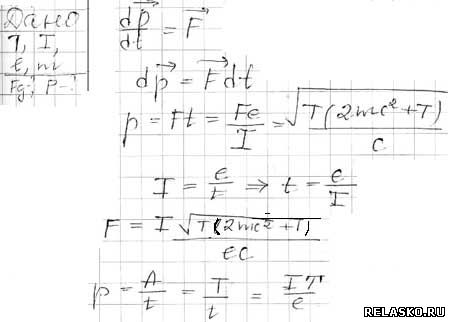 Дано
T, I,
e, m
Fg-? P-?
dp⃗/dt = F⃗
dp⃗ = F⃗dt
p = Ft = Fe/I = √(T(2mc²+T))/c
I = e/t ⇒ t = e/I
F = I √(T(2mc²+T))/ec
p = A/t = T/t = IT/e
RELASKO.RU